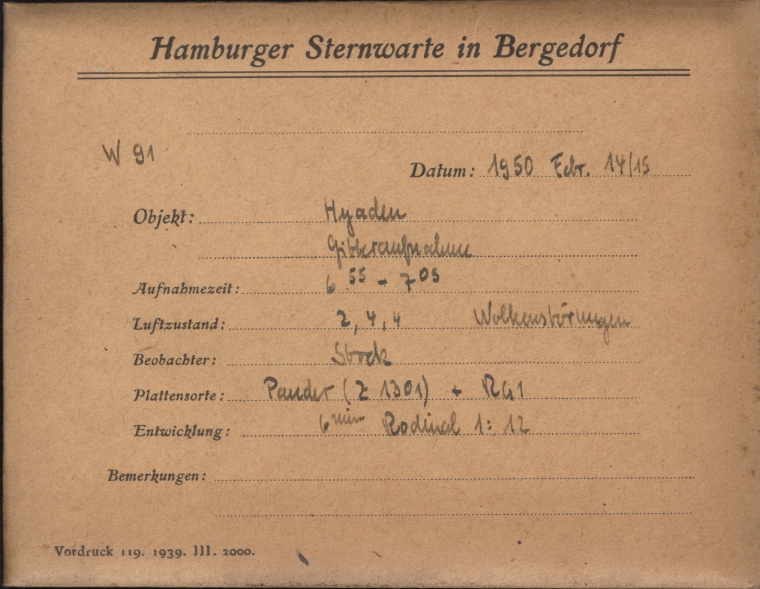 Hamburger Sternwarte in Bergedorf
W 91
Datum: 1950 Febr. 14/15
Objekt: Hyaden
Gitteraufnahme
Aufnahmezeit: 6 55 - 7 05
Luftzustand: 2, 4, 4 Wolkenstörungen
Beobachter: Stock
Plattensorte: Pander (Z 1301) + RG1
Entwicklung: 6 min Rodinal 1:12
Bemerkungen:
Vordruck 119. 1939. III. 2000.